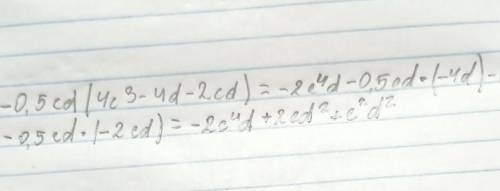 -0,5cd(4c³-4d-2cd) = -2c⁴d-0,5cd·(-4d)-
-0,5cd·(-2cd) = -2c⁴d+2cd²+c²d²